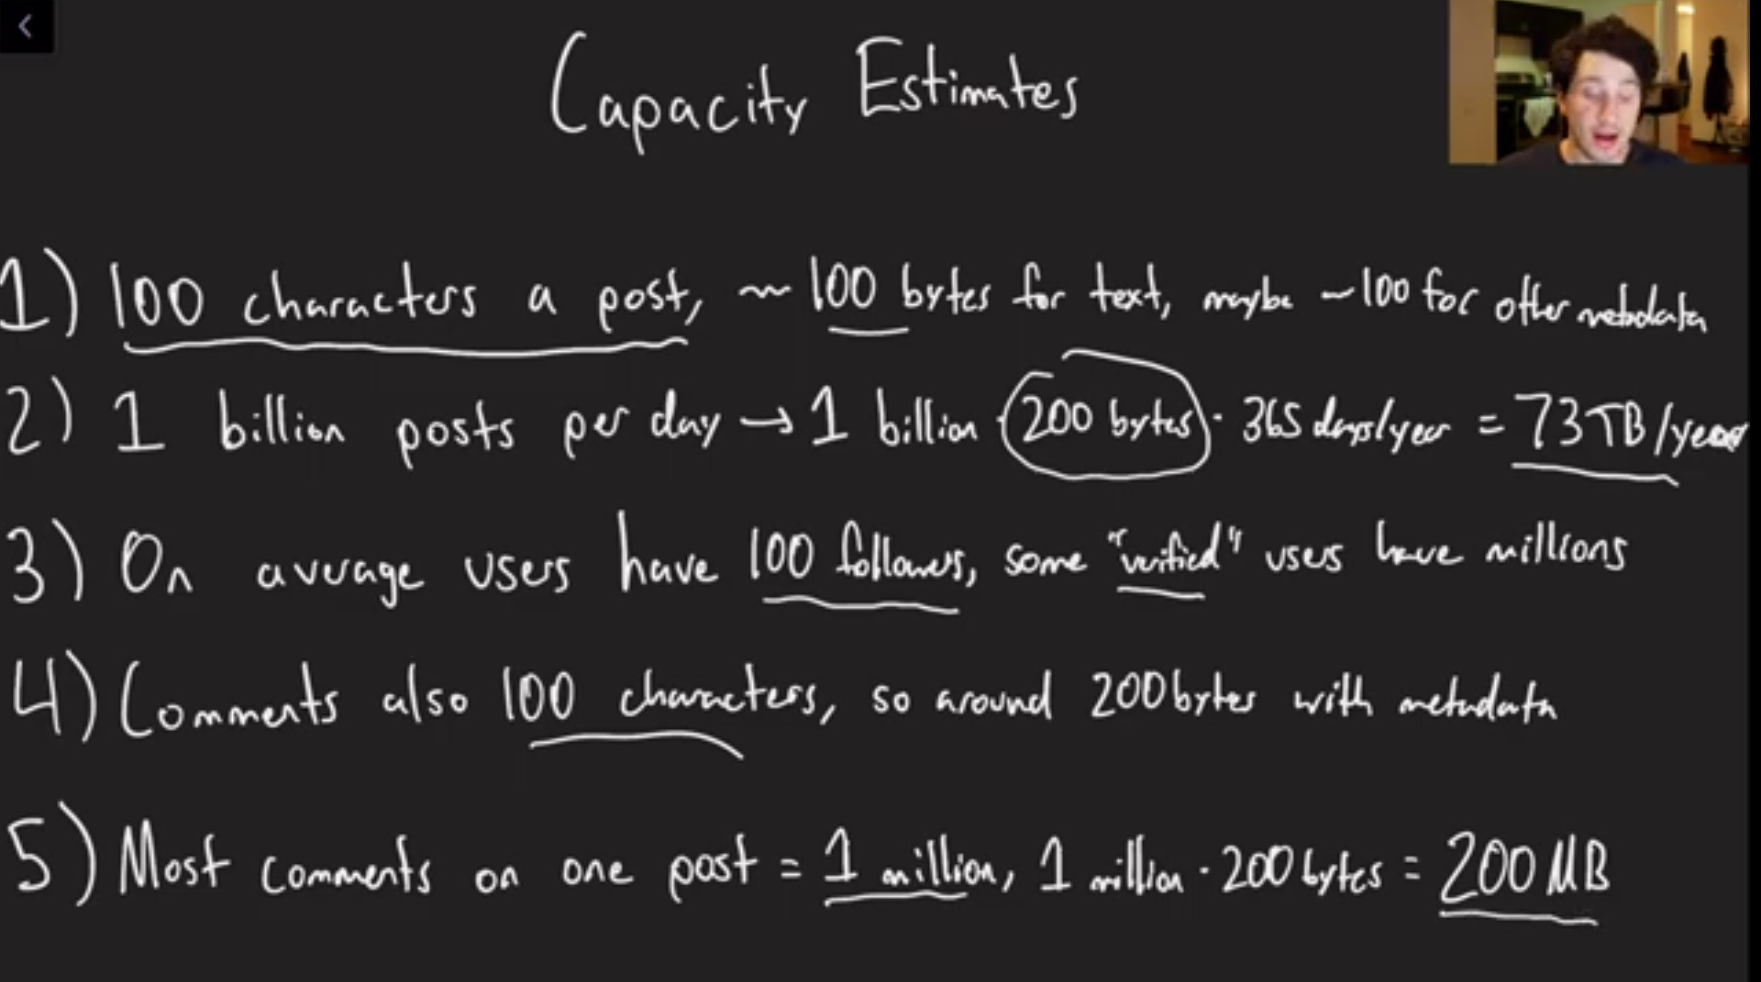 Capacity Estimates
1) 100 characters a post, ~ 100 bytes for text, maybe ~100 for other metadata
2) 1 billion posts per day → 1 billion · 200 bytes · 365 days/year = 73TB/year
3) On average users have 100 followers, some "verified" users have millions
4) Comments also 100 characters, so around 200 bytes with metadata
5) Most comments on one post = 1 million, 1 million · 200 bytes = 200 MB